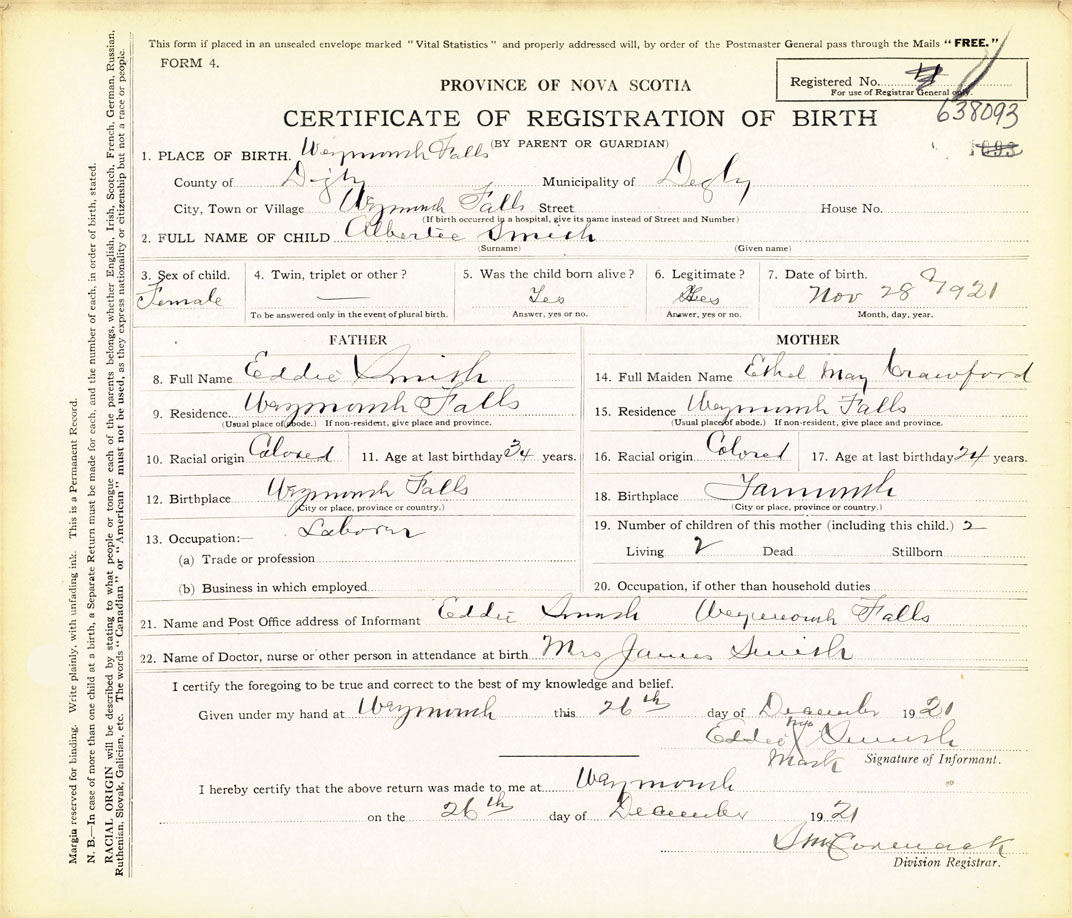 This form if placed in an unsealed envelope marked "Vital Statistics" and properly addressed will, by order of the Postmaster General pass through the Mails "FREE."
FORM 4.
Registered No.
For use of Registrar General only.
638093
PROVINCE OF NOVA SCOTIA
CERTIFICATE OF REGISTRATION OF BIRTH
(BY PARENT OR GUARDIAN)
1. PLACE OF BIRTH. Weymouth Falls
County of Digby Municipality of Digby
City, Town or Village Weymouth Falls Street House No.
(If birth occurred in a hospital, give its name instead of Street and Number)
2. FULL NAME OF CHILD Albertee Smith
(Surname) (Given name)
3. Sex of child. 4. Twin, triplet or other? 5. Was the child born alive? 6. Legitimate? 7. Date of birth.
Female — Yes Yes Nov 28 1921
To be answered only in the event of plural birth. Answer, yes or no. Answer, yes or no. Month, day, year.
FATHER
8. Full Name Eddie Smith
9. Residence. Weymouth Falls
(Usual place of abode.) If non-resident, give place and province.
10. Racial origin Colored 11. Age at last birthday 34 years.
12. Birthplace Weymouth Falls
(City or place, province or country.)
13. Occupation:— Laborer
(a) Trade or profession
(b) Business in which employed
MOTHER
14. Full Maiden Name Ethel May Crawford
15. Residence Weymouth Falls
(Usual place of abode.) If non-resident, give place and province.
16. Racial origin Colored 17. Age at last birthday 24 years.
18. Birthplace Yarmouth
(City or place, province or country.)
19. Number of children of this mother (including this child.) 2
Living 2 Dead Stillborn
20. Occupation, if other than household duties
21. Name and Post Office address of Informant Eddie Smith Weymouth Falls
22. Name of Doctor, nurse or other person in attendance at birth Mrs James Smith
I certify the foregoing to be true and correct to the best of my knowledge and belief.
Given under my hand at Weymouth this 26th day of December 1921
Eddie his X Smith
Mark Signature of Informant.
I hereby certify that the above return was made to me at Weymouth
on the 26th day of December 1921
Division Registrar.
Margin reserved for binding. Write plainly, with unfading ink. This is a Permanent Record.
N. B.—In case of more than one child at a birth, a Separate Return must be made for each, and the number of each, in order of birth, stated.
RACIAL ORIGIN will be described by stating to what people or tongue each of the parents belongs, whether English, Irish, Scotch, French, German, Russian,
Ruthenian, Slovak, Galician, etc. The words "Canadian" or "American" must not be used, as they express nationality or citizenship but not a race or people.